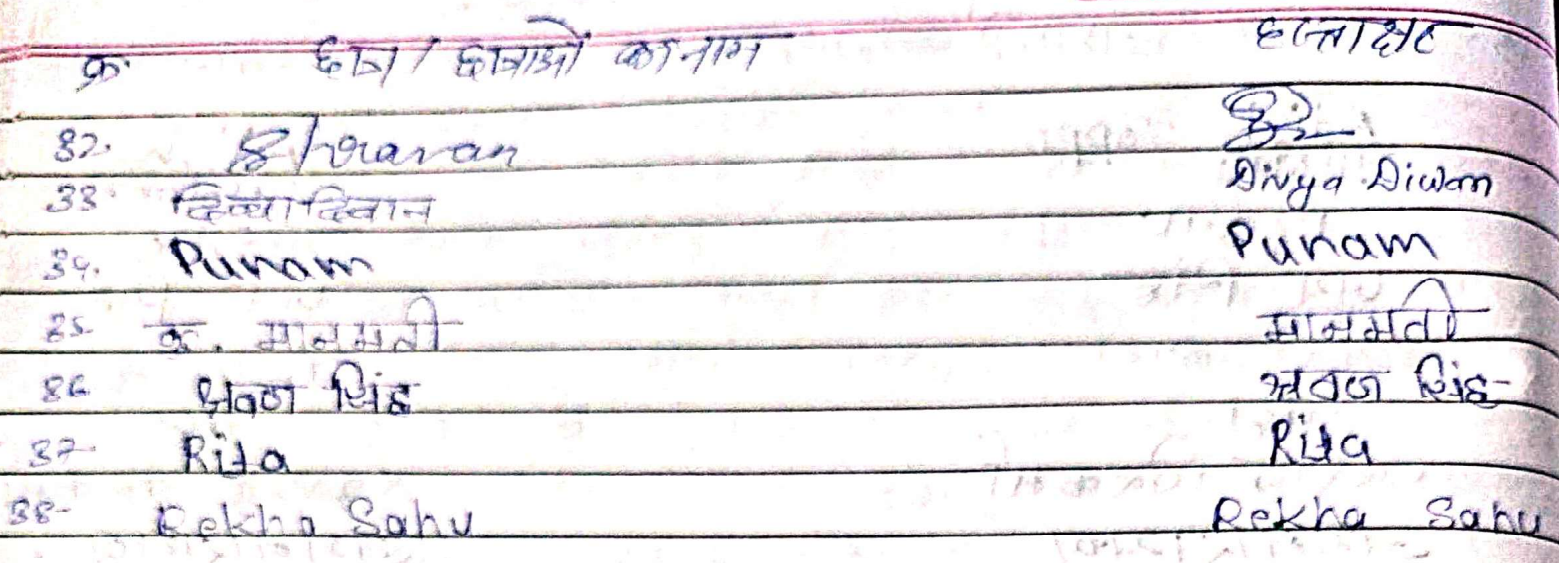 क्र. छात्र / छात्राओं का नाम हस्ताक्षर
32. Shravan
33. दिव्या दिवान Divya Diwan
34. Punam Punam
35. कु. मानमती मानमती
36 श्रवण सिंह श्रवण सिंह
37. Rita Rita
38- Rekha Sahu Rekha Sahu